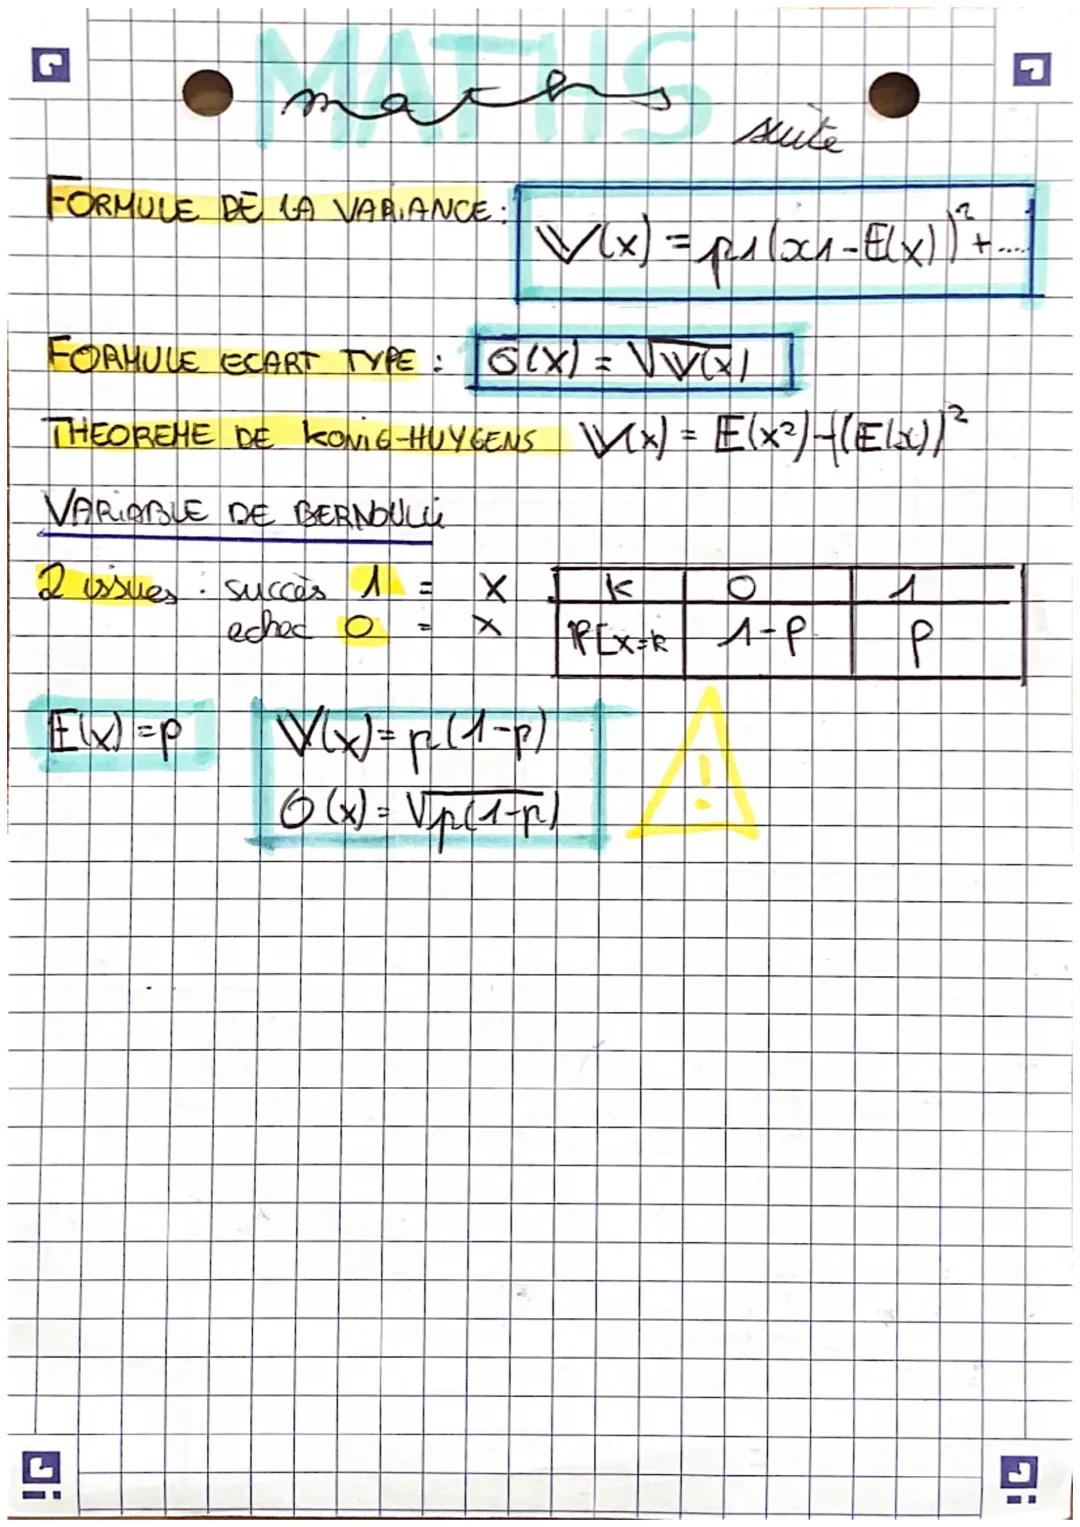 MATHS
maths
suite
FORMULE DE LA VARIANCE : V(x) = p1(x1-E(x))²+....
FORMULE ECART TYPE : σ(x) = √V(x)
THEOREME DE KONIG-HUYGENS V(x) = E(x²)-((E(x))²
VARIABLE DE BERNOULLI
2 issues : succès 1 = X
echec 0 = X
k 0 1
P[X=k 1-P P
E(x)=p
V(x)= p(1-p)
σ(x)= √p(1-p)
!